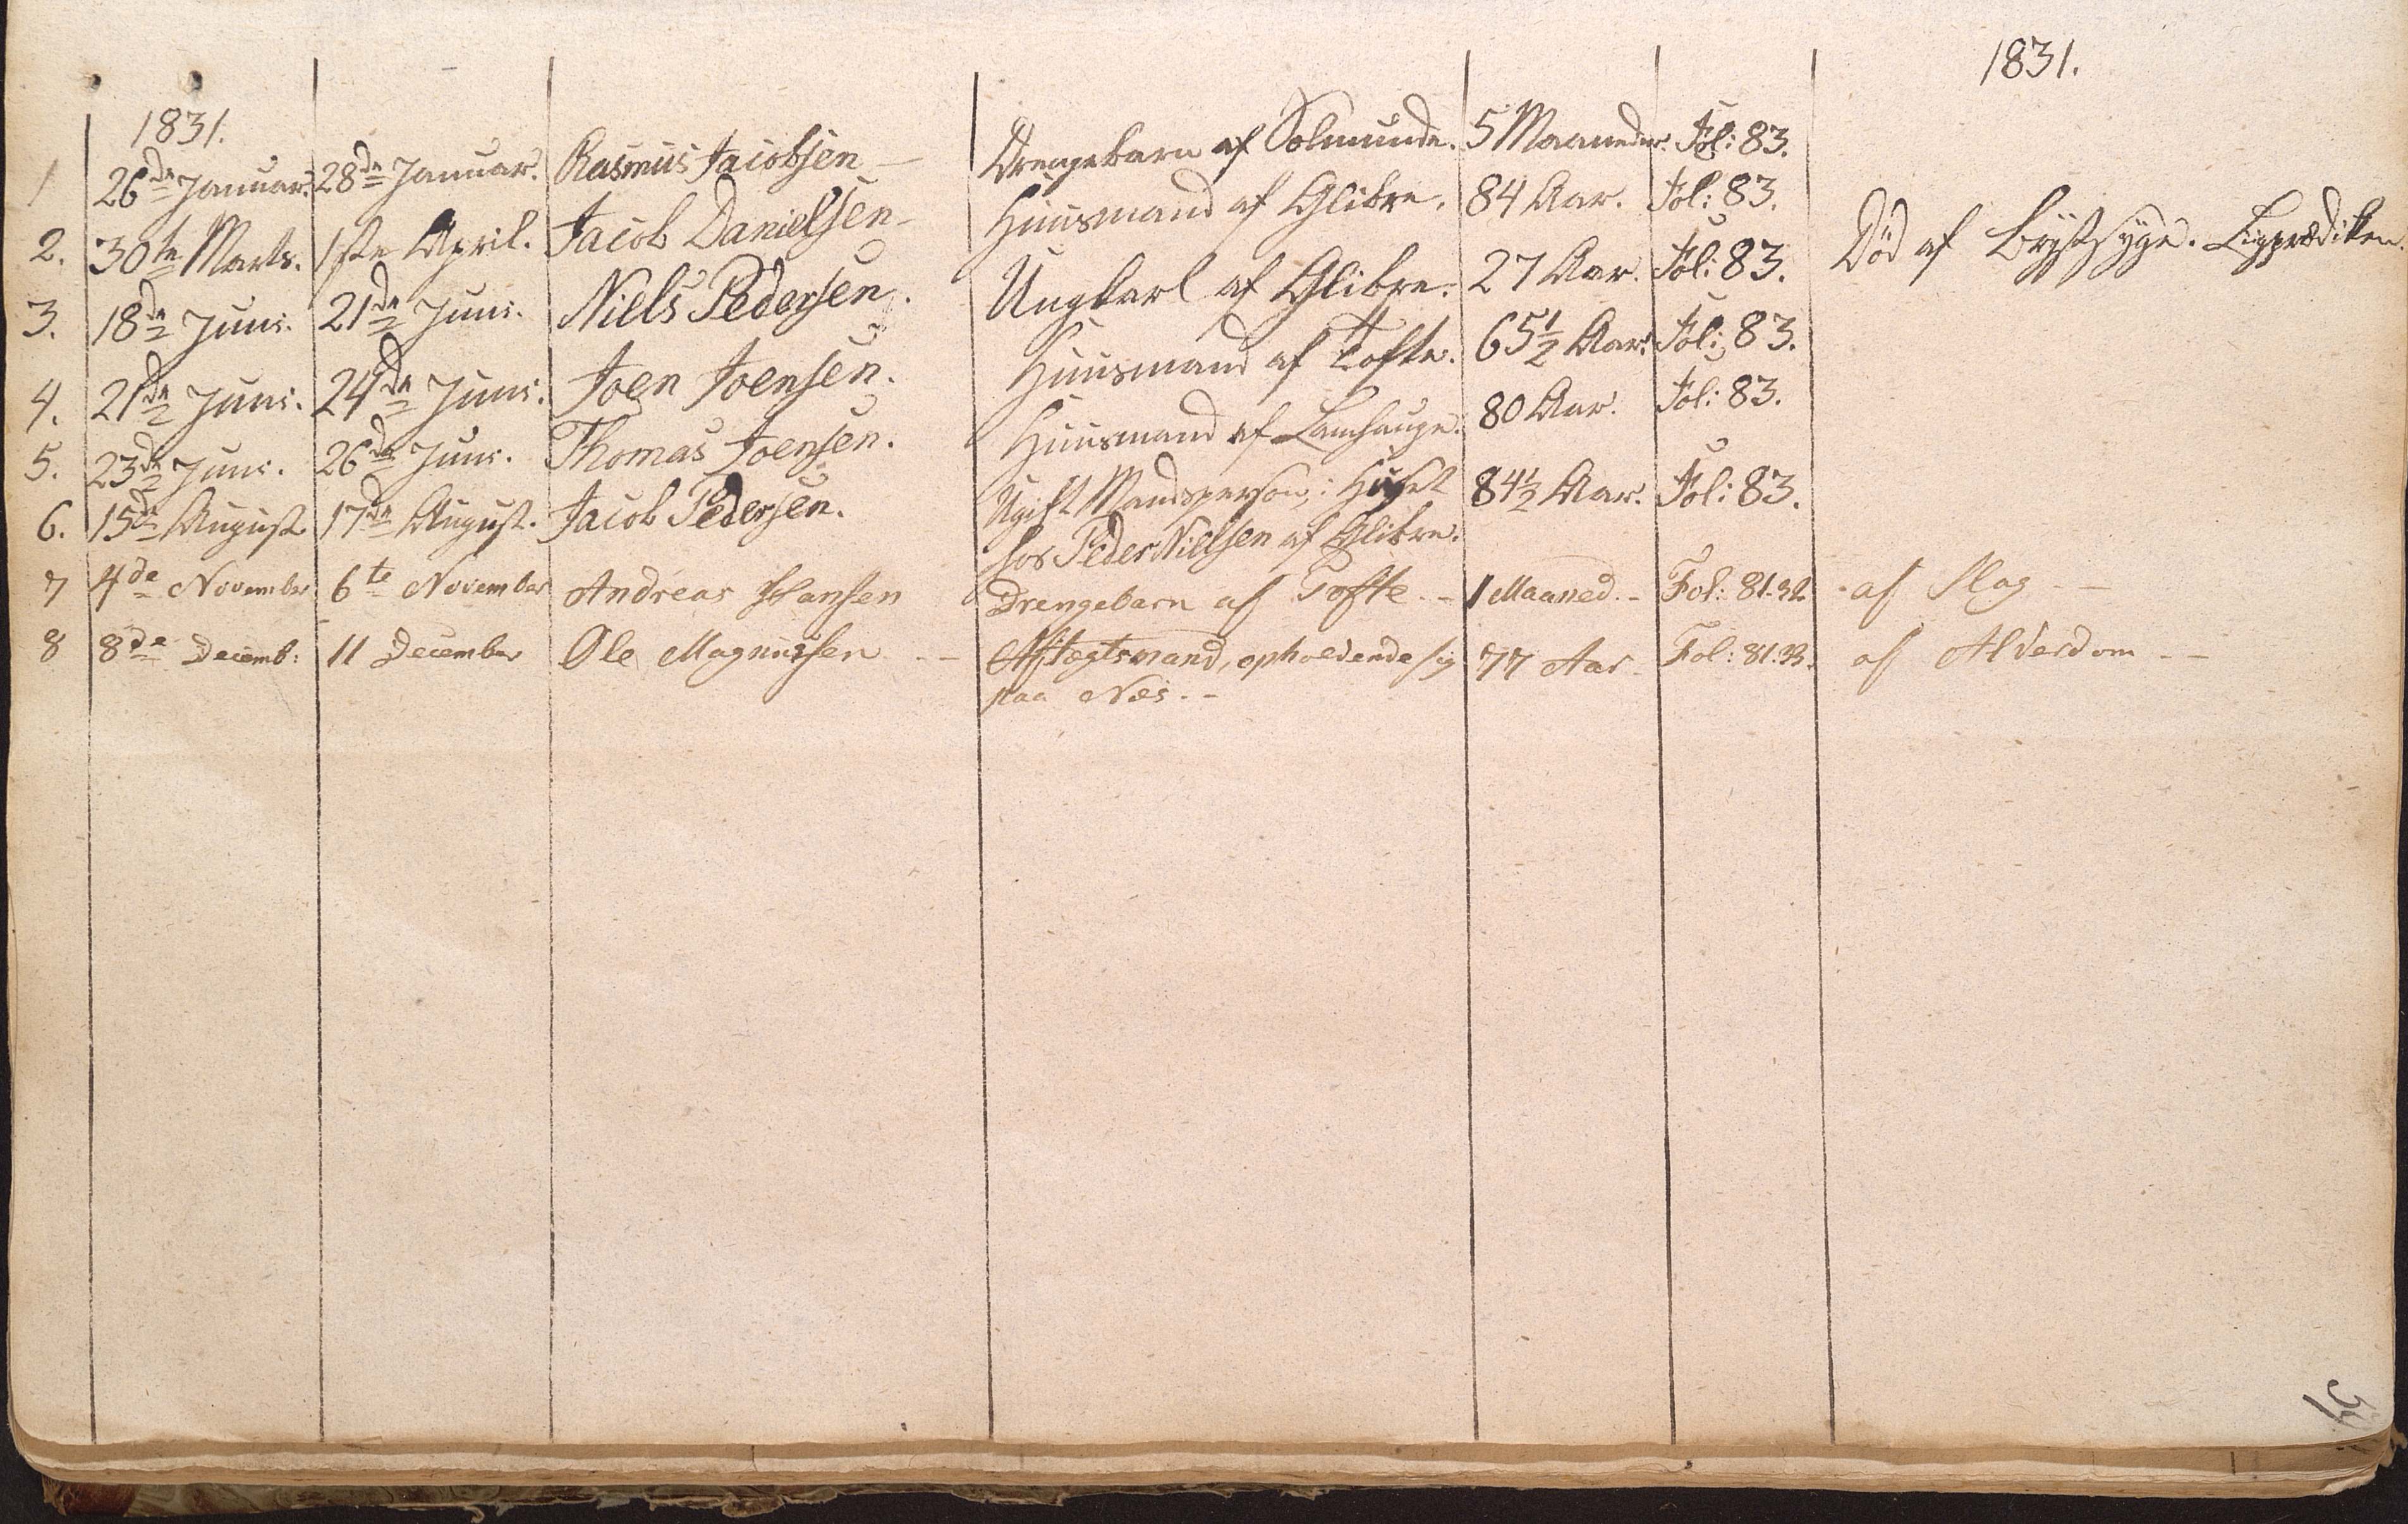 1831.
1831.
1 26de Januar. 28de Januar. Rasmus Jacobsen Drengebarn af Solmunde. 5 Maaneder. Fol: 83.
2. 30te Marts. 1ste April. Jacob Danielsen Huusmand af Glibre. 84 Aar. Fol: 83.
3. 18de Juni. 21de Juni. Niels Pedersen. Ungkarl af Glibre. 27 Aar. Fol: 83. Død af Brÿstsyge. Ligprædiken.
4. 21de Juni. 24de Juni. Joen Joensen. Huusmand af Tofte. 65½ Aar. Fol: 83.
5. 23de Juni. 26de Juni. Thomas Joensen. Huusmand af Lamhauge. 80 Aar. Fol: 83.
6. 15de August 17de August. Jacob Pedersen. Ugift Mandsperson, i Huset 84½ Aar. Fol: 83.
hos Peder Nielsen af Glibre.
7 4de November 6te November Andreas Hansen Drengebarn af Tofte. - 1 Maaned. - Fol: 81.32. af Slag -
8 8de Decemb: 11 December Ole Magnussen - - Aftægtsmand, opholdende sig 77 Aar Fol: 81.33. af Alderdom - -
paa Næs. -